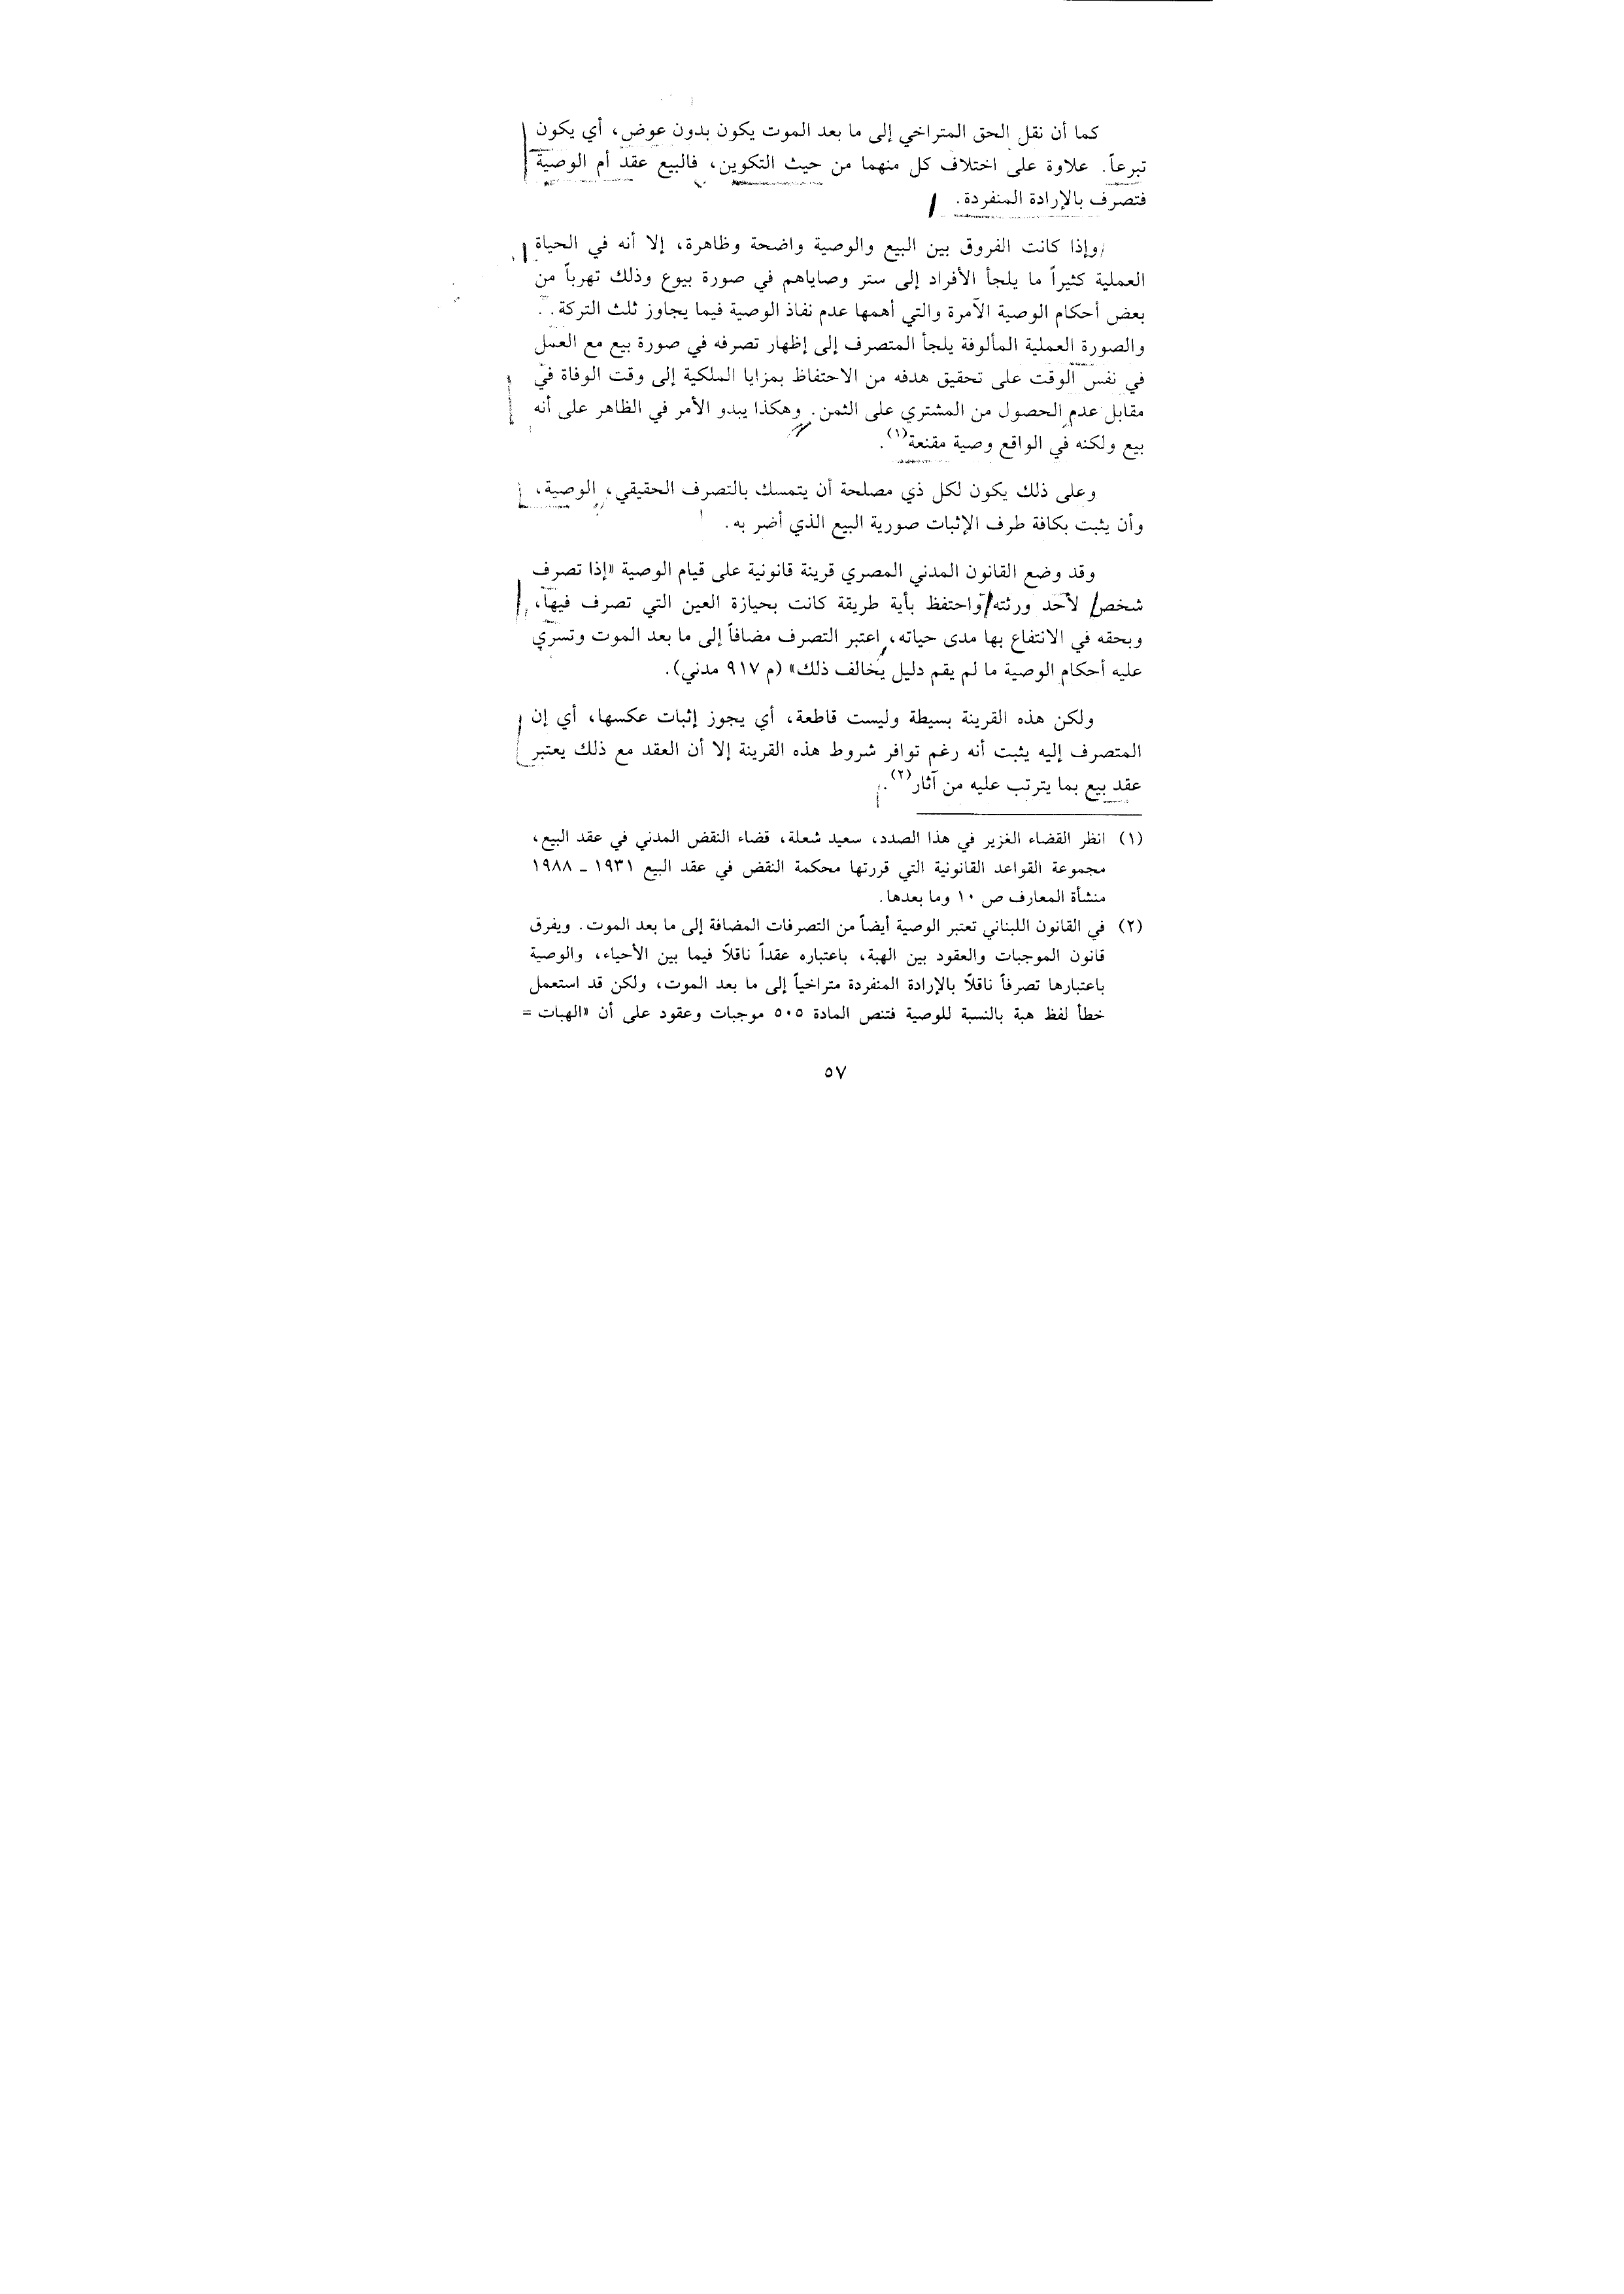 كما أن نقل الحق المتراخي إلى ما بعد الموت يكون بدون عوض، أي يكون
تبرعاً. علاوة على اختلاف كل منهما من حيث التكوين، فالبيع عقد أم الوصية
فتصرف بالإرادة المنفردة.
وإذا كانت الفروق بين البيع والوصية واضحة وظاهرة، إلا أنه في الحياة
العملية كثيراً ما يلجأ الأفراد إلى ستر وصاياهم في صورة بيوع وذلك تهرباً من
بعض أحكام الوصية الآمرة والتي أهمها عدم نفاذ الوصية فيما يجاوز ثلث التركة.
والصورة العملية المألوفة يلجأ المتصرف إلى إظهار تصرفه في صورة بيع مع العمل
في نفس الوقت على تحقيق هدفه من الاحتفاظ بمزايا الملكية إلى وقت الوفاة في
مقابل عدم الحصول من المشتري على الثمن. وهكذا يبدو الأمر في الظاهر على أنه
بيع ولكنه في الواقع وصية مقنعة(١).
وعلى ذلك يكون لكل ذي مصلحة أن يتمسك بالتصرف الحقيقي، الوصية،
وأن يثبت بكافة طرف الإثبات صورية البيع الذي أضر به.
وقد وضع القانون المدني المصري قرينة قانونية على قيام الوصية «إذا تصرف
شخص لأحد ورثته واحتفظ بأية طريقة كانت بحيازة العين التي تصرف فيها،
وبحقه في الانتفاع بها مدى حياته، اعتبر التصرف مضافاً إلى ما بعد الموت وتسري
عليه أحكام الوصية ما لم يقم دليل يخالف ذلك» (م ٩١٧ مدني).
ولكن هذه القرينة بسيطة وليست قاطعة، أي يجوز إثبات عكسها، أي إن
المتصرف إليه يثبت أنه رغم توافر شروط هذه القرينة إلا أن العقد مع ذلك يعتبر
عقد بيع بما يترتب عليه من آثار(٢).
(١) انظر القضاء الغزير في هذا الصدد، سعيد شعلة، قضاء النقض المدني في عقد البيع،
مجموعة القواعد القانونية التي قررتها محكمة النقض في عقد البيع ١٩٣١ ـ ١٩٨٨
منشأة المعارف ص ١٠ وما بعدها.
(٢) في القانون اللبناني تعتبر الوصية أيضاً من التصرفات المضافة إلى ما بعد الموت. ويفرق
قانون الموجبات والعقود بين الهبة، باعتباره عقداً ناقلاً فيما بين الأحياء، والوصية
باعتبارها تصرفاً ناقلاً بالإرادة المنفردة متراخياً إلى ما بعد الموت، ولكن قد استعمل
خطأ لفظ هبة بالنسبة للوصية فتنص المادة ٥٠٥ موجبات وعقود على أن «الهبات =
٥٧